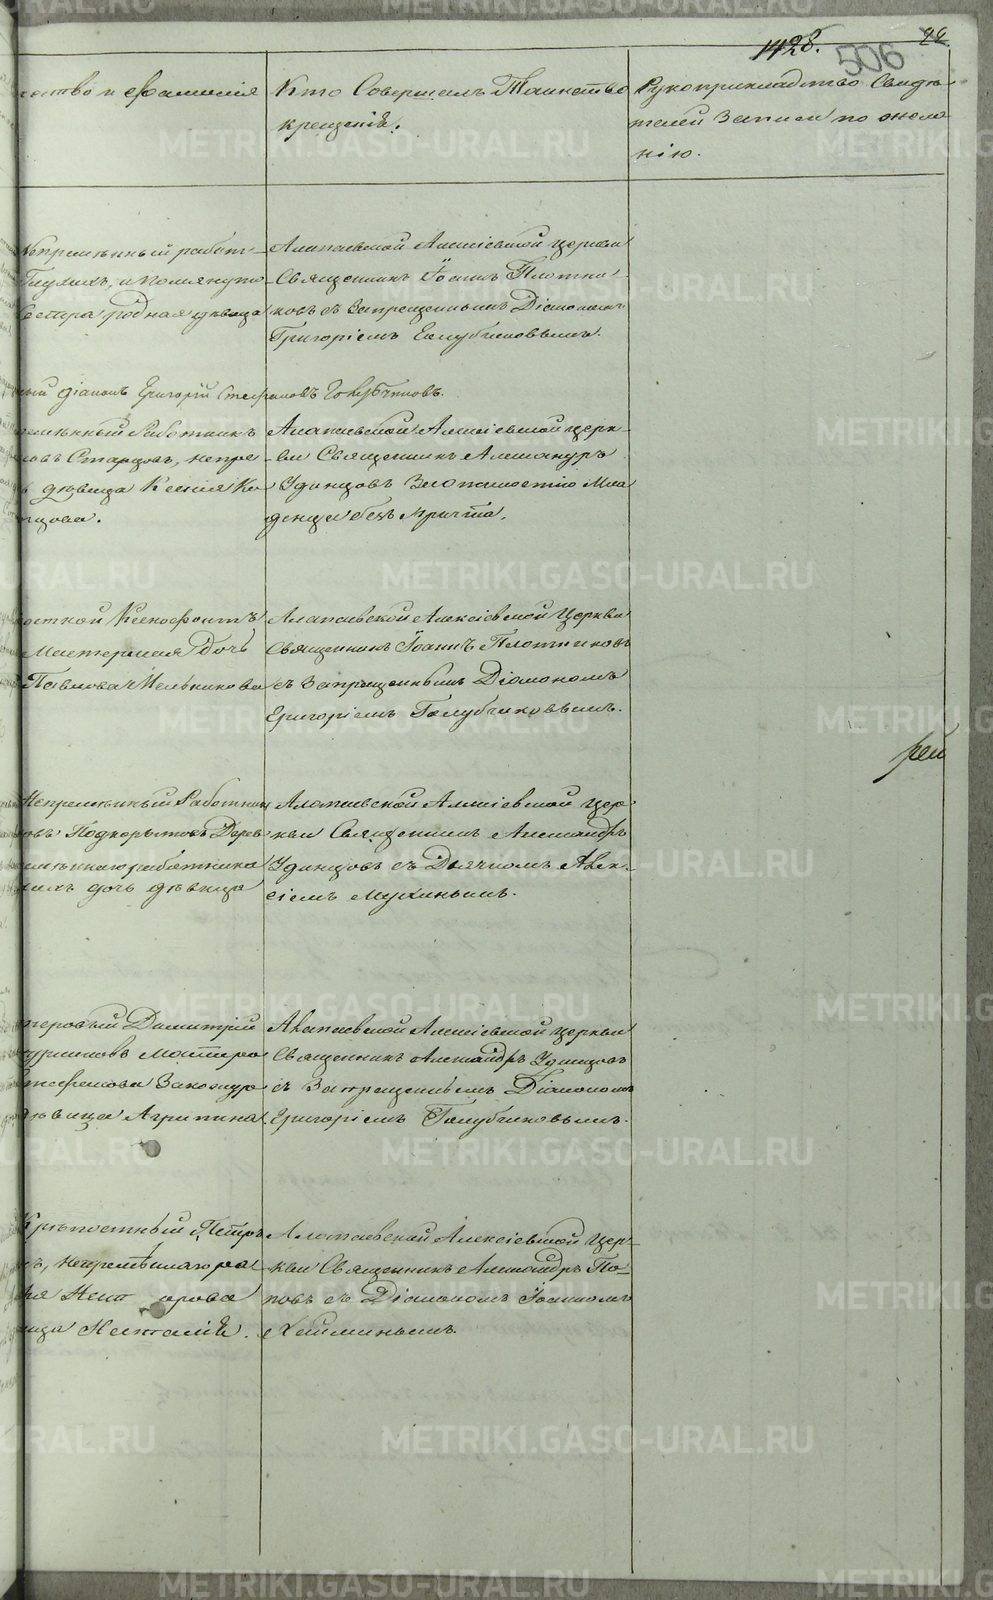 1428. 506
чество и фамилія
Кто Совершалъ Таинство
крещенія.
Рукоприкладство Свидѣ-
телей Записи по жела-
нію.
Непремѣнный работ-
сестра родная дѣвица
Алапаевской Алексіевской церкви
Священникъ Іоаннъ Плотни-
ковъ съ Запрещеннымъ Діакономъ
Григоріемъ Голубчиковымъ.
ный діаконъ Григорій Стефановъ Голубчиковъ.
ремѣнный Работникъ
овъ Старцовъ, непре-
дѣвица Ксенія
цова.
Алапаевской Алексіевской церк-
ви Священникъ Александръ
Удинцовъ За опасностію Мла-
денца безъ причта.
постной Ксенофонтъ
Мастерская дочь
Павлова Мельникова
Алапаевской Алексіевской Церкви
Священникъ Іоаннъ Плотниковъ
съ Запрещеннымъ Діакономъ
Григоріемъ Голубчиковымъ.
Непремѣнный Работникъ
овъ Подкорытовъ Дерев
емѣннаго работника
дочь дѣвица
Алапаевской Алексіевской Цер-
кви Священникъ Александръ
Удинцовъ съ Дьячкомъ Алек-
сіемъ Мухинымъ.
теровый Димитрій
Мастеро
Стефанова
дѣвица Агрипина
Алапаевской Алексіевской церкви
Священникъ Александръ Удинцовъ
съ Запрещеннымъ Діакономъ
Григоріемъ Голубчиковымъ.
Крѣпостный Петръ
непремѣннаго ра
ица Наталія.
Алапаевской Алексіевской Цер-
кви Священникъ Александръ По-
повъ съ Діакономъ Іоанномъ
рей
METRIKI.GASO-URAL.RU